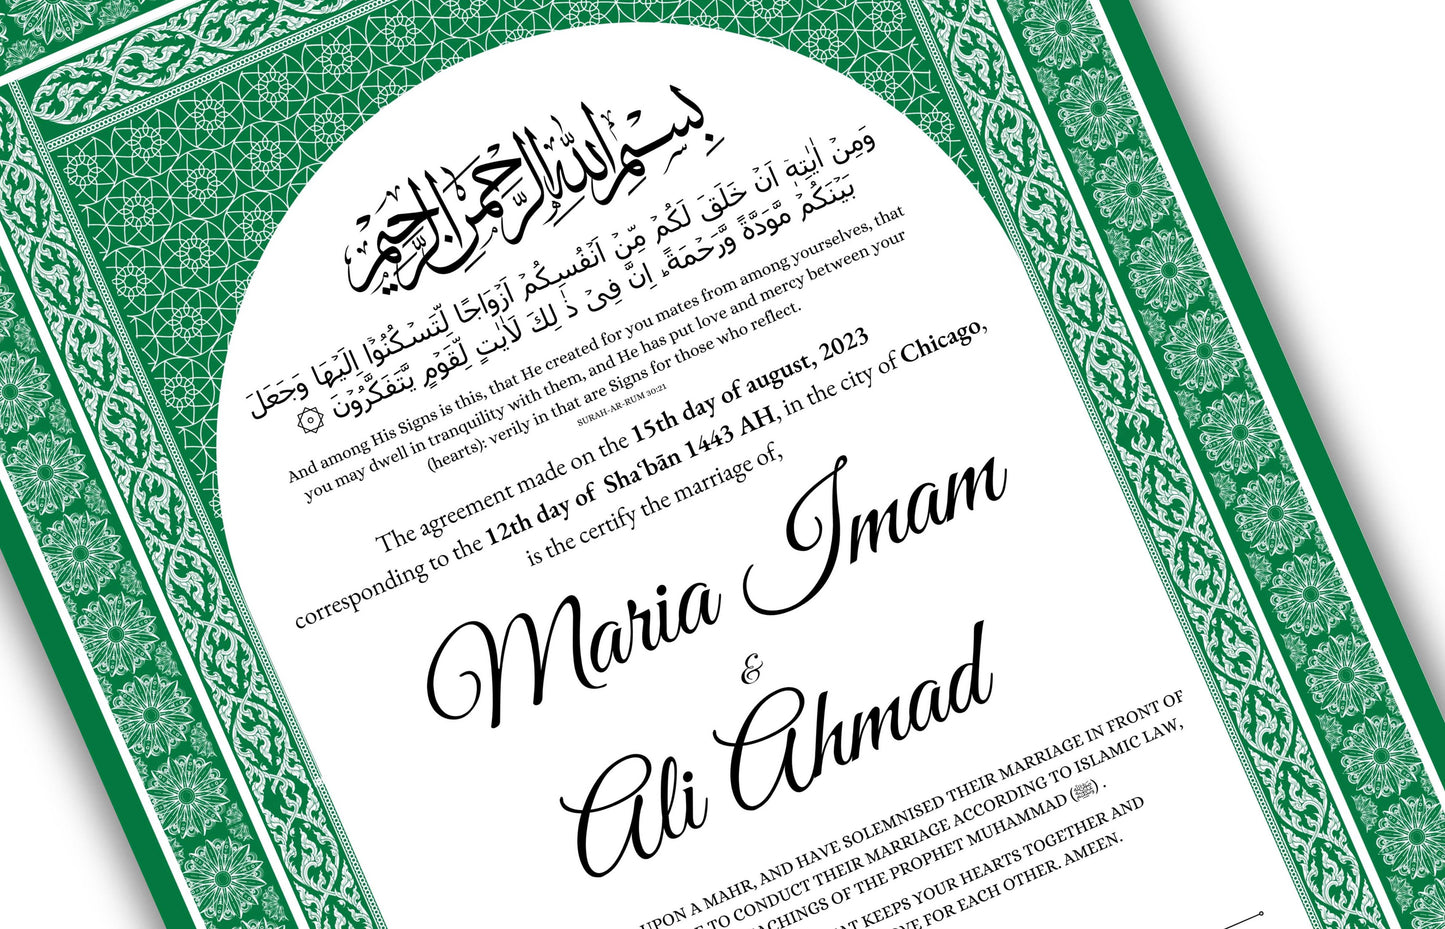 بِسْمِ اللهِ الرَّحْمٰنِ الرَّحِيْمِ
وَمِنۡ اٰيٰتِهٖۤ اَنۡ خَلَقَ لَكُمۡ مِّنۡ اَنۡفُسِكُمۡ اَزۡوَاجًا لِّتَسۡكُنُوۡۤا اِلَيۡهَا وَجَعَلَ
بَيۡنَكُمۡ مَّوَدَّةً وَّرَحۡمَةً ؕ اِنَّ فِىۡ ذٰ لِكَ لَاٰيٰتٍ لِّقَوۡمٍ يَّتَفَكَّرُوۡنَ
And among His Signs is this, that He created for you mates from among yourselves, that
you may dwell in tranquility with them, and He has put love and mercy between your
(hearts): verily in that are Signs for those who reflect.
SURAH-AR-RUM 30:21
The agreement made on the 15th day of august, 2023
corresponding to the 12th day of Sha‘bān 1443 AH, in the city of Chicago,
is the certify the marriage of,
Maria Imam
&
Ali Ahmad
UPON A MAHR, AND HAVE SOLEMNISED THEIR MARRIAGE IN FRONT OF
TO CONDUCT THEIR MARRIAGE ACCORDING TO ISLAMIC LAW,
OF THE PROPHET MUHAMMAD (ﷺ) .
KEEPS YOUR HEARTS TOGETHER AND
FOR EACH OTHER. AMEEN.